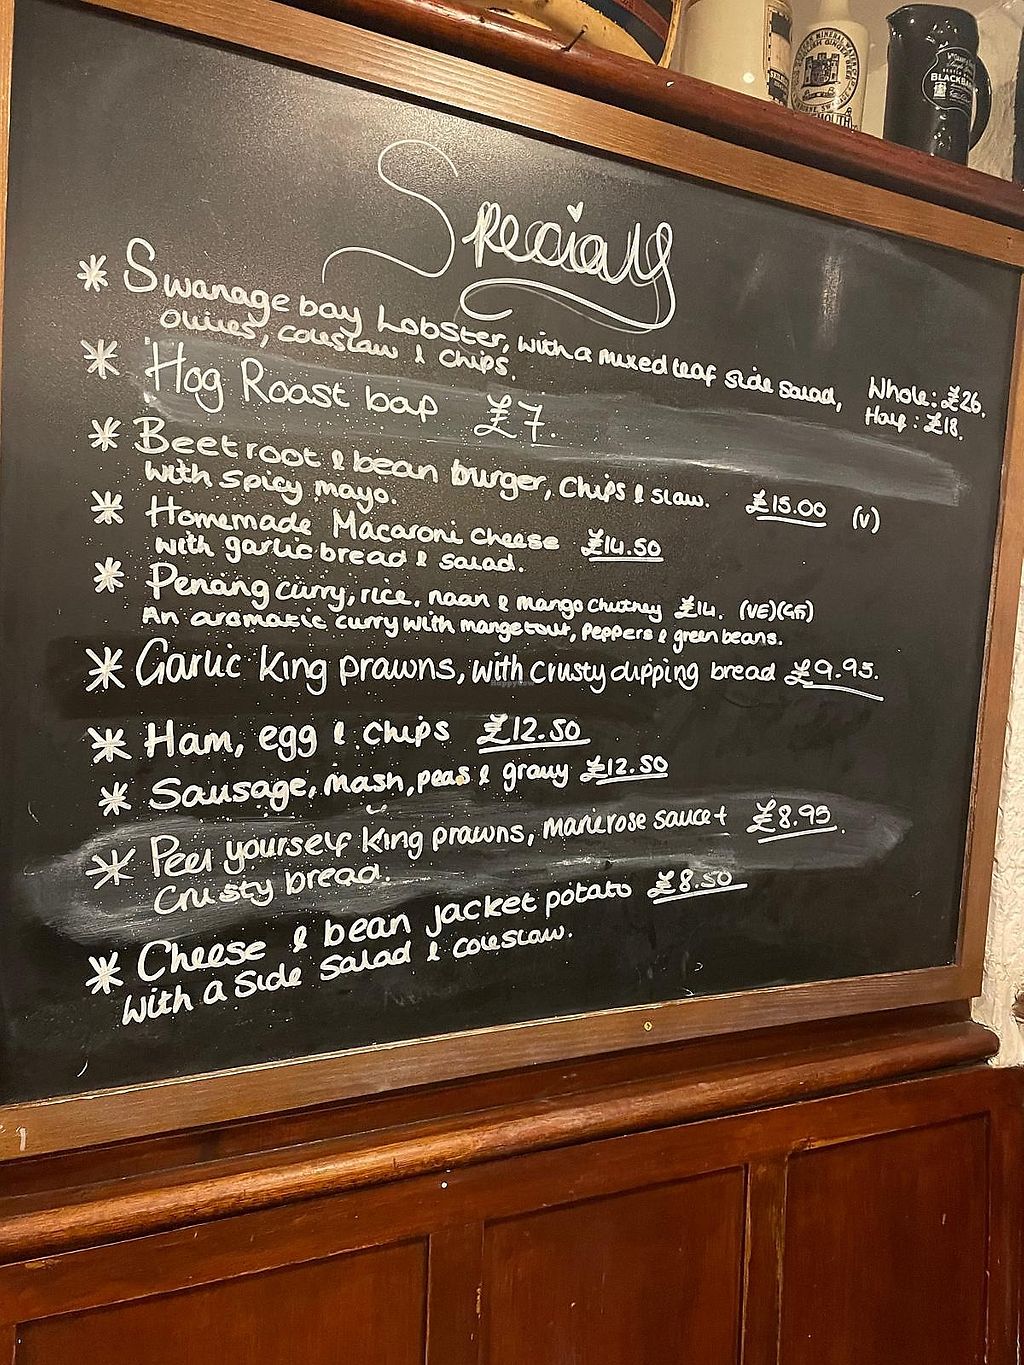 Specials
* Swanage bay Lobster, with a mixed leaf side salad,
olives, coleslaw & chips.
Whole: £26.
Half: £18.
* Hog Roast bap £7.
* Beetroot & bean burger, chips & slaw. £15.00 (V)
with spicy mayo.
* Homemade Macaroni cheese £14.50
with garlic bread & salad.
* Penang curry, rice, naan & mango chutney £14. (VE)(GF)
An aromatic curry with mangetout, peppers & green beans.
* Garlic King prawns, with crusty dipping bread £9.95.
* Ham, egg & chips £12.50
* Sausage, mash, peas & gravy £12.50
* Peel yourself King prawns, marierose sauce + £8.95.
Crusty bread.
* Cheese & bean jacket potato £8.50
With a side salad & coleslaw.
HappyCow
MINERAL WATER
GINGER BEER
BLACKBARREL